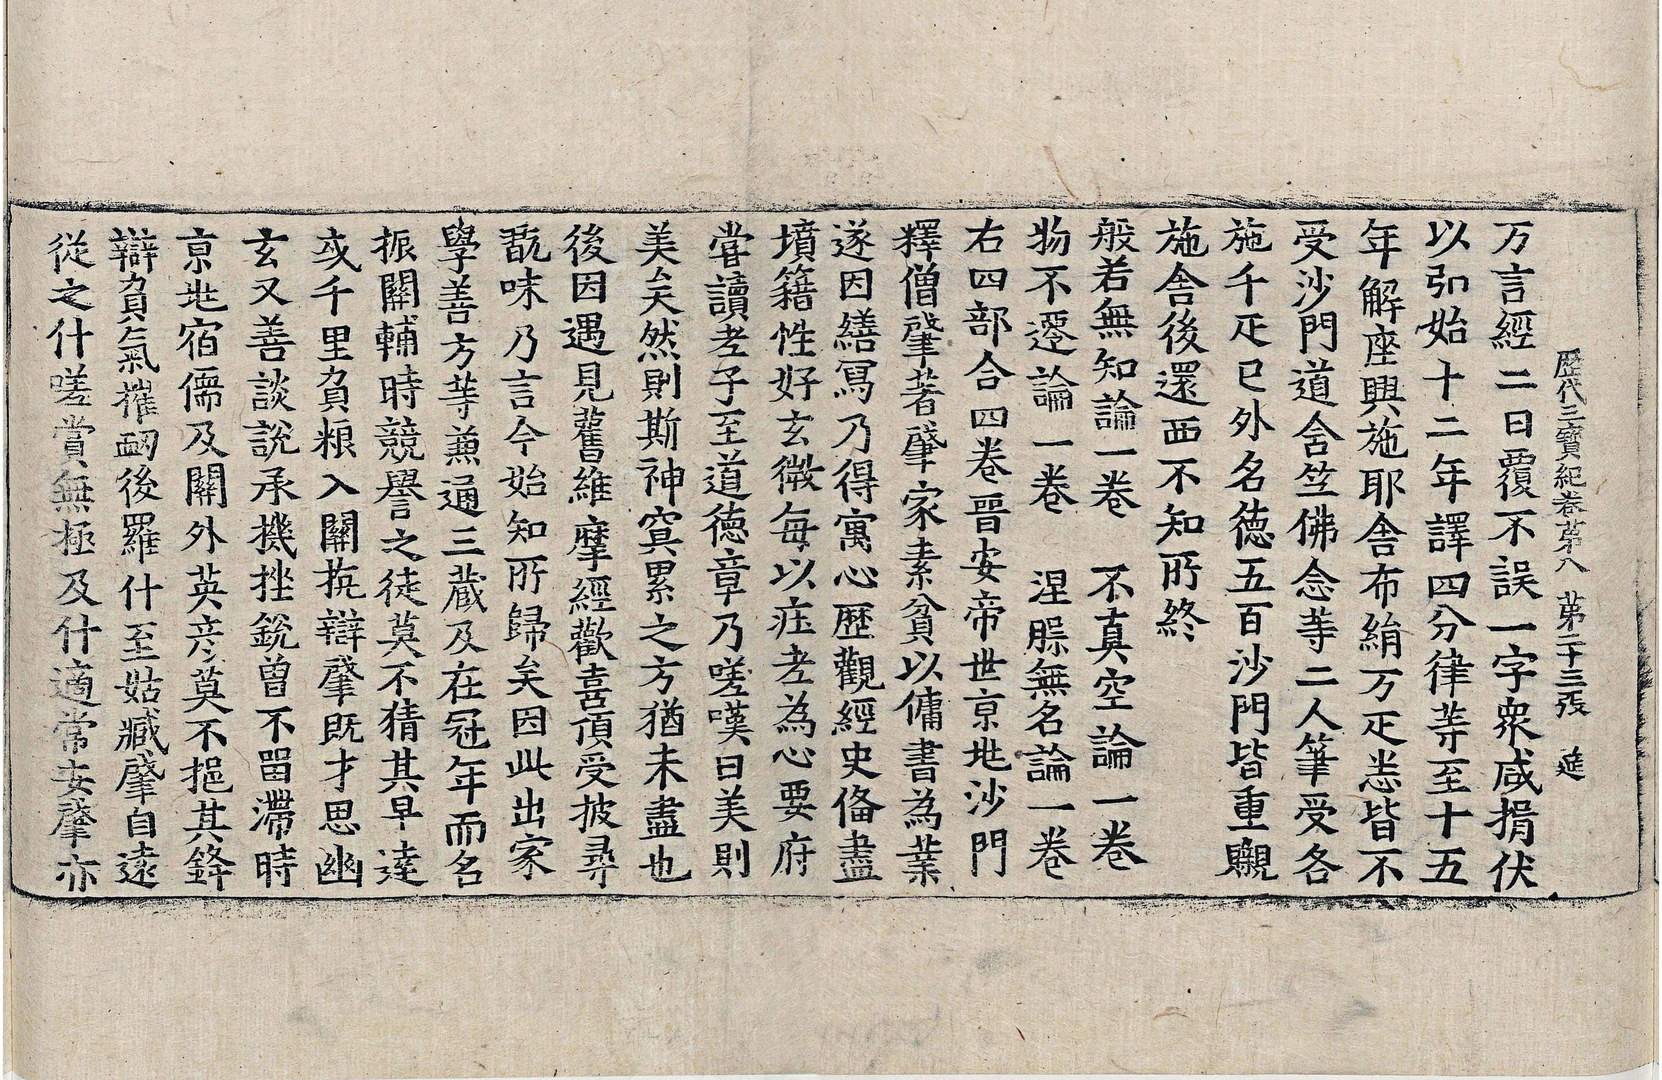 歷代三寶紀卷苐八　苐二十三張　廷
万言經二日覆不誤一字衆咸揖伏
以弘始十二年譯四分律䓁至十五
年解座興施耶舍布絹万疋悉皆不
受沙門道含竺佛念䓁二人筆受各
施千疋已外名德五百沙門皆重䞋
施舍後還西不知所終
般若無知論一卷　不真空論一卷
物不遷論一卷　涅槃無名論一卷
右四部合四卷晉安帝世京地沙門
釋僧肇著肇家素貧以傭書為業
遂因繕寫乃得寓心歷觀經史俻盡
墳籍性好玄微每以庄老為心要府
甞讀老子至道德章乃嗟嘆曰美則
美矣然則斯神冥累之方猶未盡也
後因遇見舊維摩經歡喜頂受披尋
翫味乃言今始知所歸矣因此出家
學善方䓁兼通三藏及在冠年而名
振關輔時競譽之徒莫不猜其早達
或千里負粮入關抗辯肇既才思幽
玄又善談說承機挫銳曾不留滯時
京地宿儒及關外英彥莫不挹其鋒
辯負氣摧衂後羅什至姑臧肇自遠
從之什嗟賞無極及什適常安肇亦